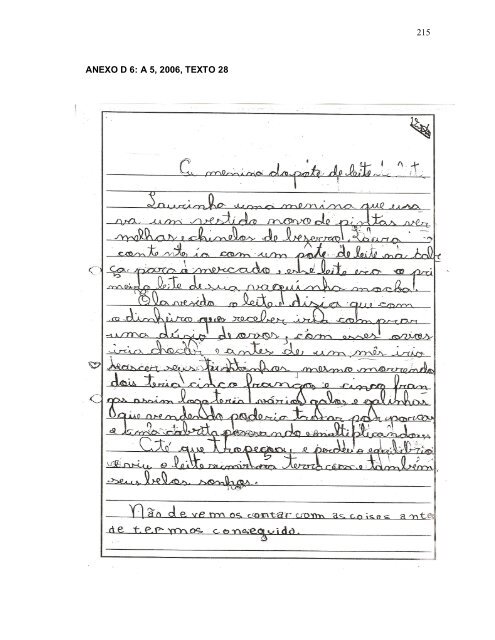 215
ANEXO D 6: A 5, 2006, TEXTO 28
A menina do pote de leite
Laurinha uma menina que usa
va um vestido novo de pintas ver
melhas e chinelos de bezerro. Laura
contente ia com um pote de leite na cabe
ça para o mercado, esse leite era o pri
meiro leite de sua vaquinha mocha.
Ela vendia o leite e dizia que com
o dinheiro que receber iria comprar
uma dúzia de ovos, com esses ovos
iria chocar e antes de um mês iria
nascer seus pintinhos, mesmo morrendo
dois teria cinco frangas e cinco fran
gos assim logo teria vários galos e galinhas
que vendendo poderia trocar por porcas
e uma cabrita
Até que tropeçou e perdeu o equilíbrio
e viu o leite terra e também
seus belos sonhos.
Não devemos contar com as coisas ante
de termos conseguido.